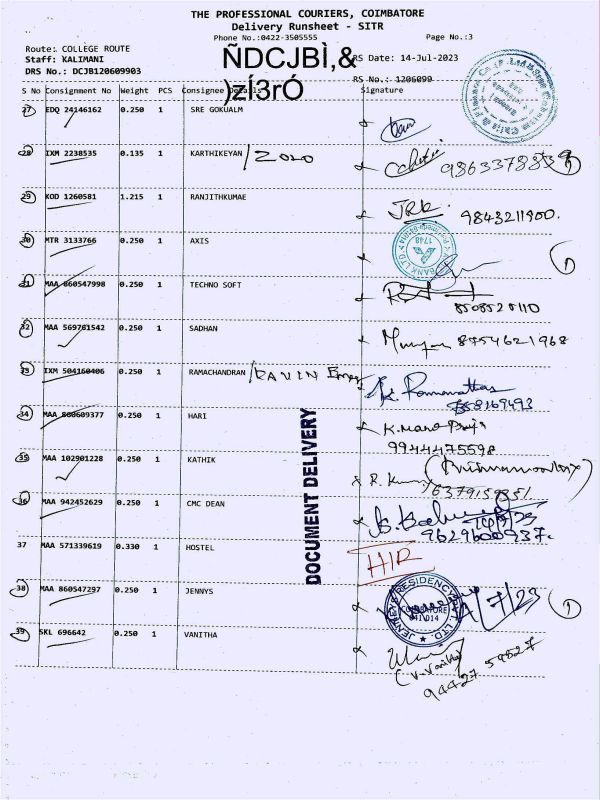 THE PROFESSIONAL COURIERS, COIMBATORE
Delivery Runsheet - SITR
Phone No.:0422-3505555 Page No.:3
Route: COLLEGE ROUTE
Staff: KALIMANI ÑDCJBÌ,& RS Date: 14-Jul-2023
DRS No.: DCJB120609903 )zÍ3rÓ RS No.: 1206099
S No Consignment No Weight PCS Consignee Details Signature
27 EDQ 24146162 0.250 1 SRE GOKUALM
28 IXM 2238535 0.135 1 KARTHIKEYAN /2020
29 KOD 1260581 1.215 1 RANJITHKUMAE JRK 9843211900.
30 MTR 3133766 0.250 1 AXIS
31 MAA 860547998 0.250 1 TECHNO SOFT
32 MAA 569761542 0.250 1 SADHAN 8754621968
33 IXM 504160406 0.250 1 RAMACHANDRAN
34 MAA 860609377 0.250 1 HARI
9944475598
35 MAA 102901228 0.250 1 KATHIK
36 MAA 942452629 0.250 1 CMC DEAN
9629600937.
37 MAA 571339619 0.330 1 HOSTEL HIR
38 MAA 860547297 0.250 1 JENNYS
39 SKL 696642 0.250 1 VANITHA
(V-Vanitha)
94427 59827
DOCUMENT DELIVERY
COIMBATORE
641 014
1748